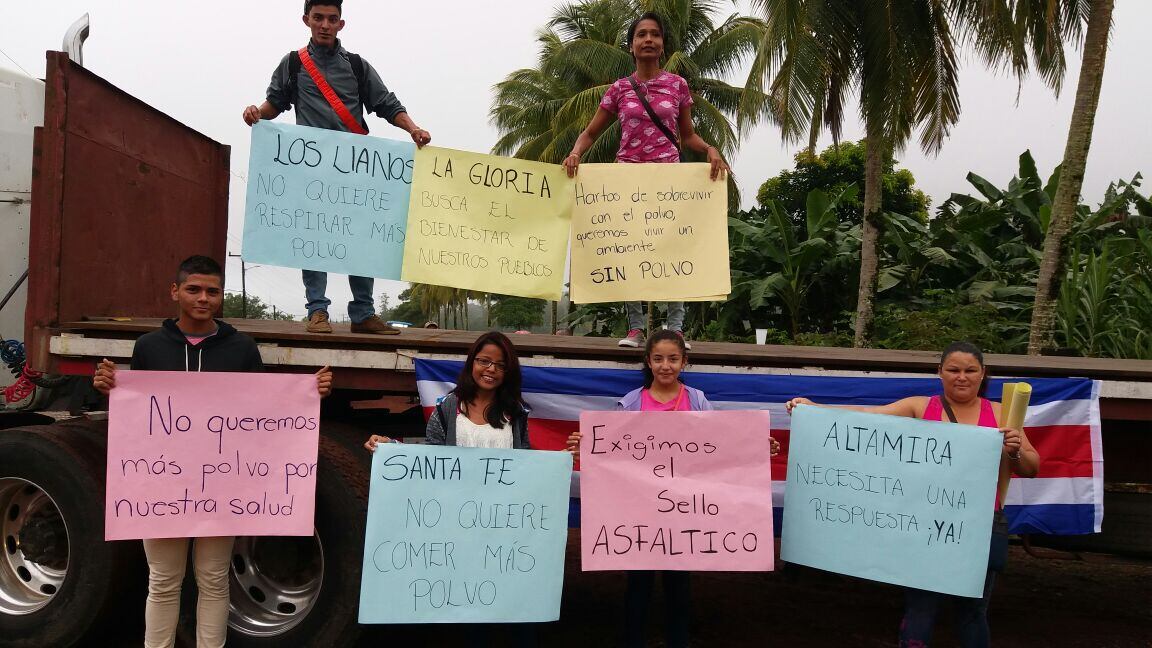 LOS LlANOS
NO QUIERE
RESPIRAR MAS
POLVO
LA GLORIA
BUSCA EL
BIENESTAR DE
NUESTROS PUEBLOS
Hartos de sobrevivir
con el polvo,
queremos vivir un
ambiente
SIN POLVO
No queremos
más polvo por
nuestra salud
SANTA FE
NO QUIERE
COMER MÁS
POLVO
Exigimos
el
Sello
ASFALTICO
ALTAMIRA
NECESITA UNA
RESPUESTA ¡YA!